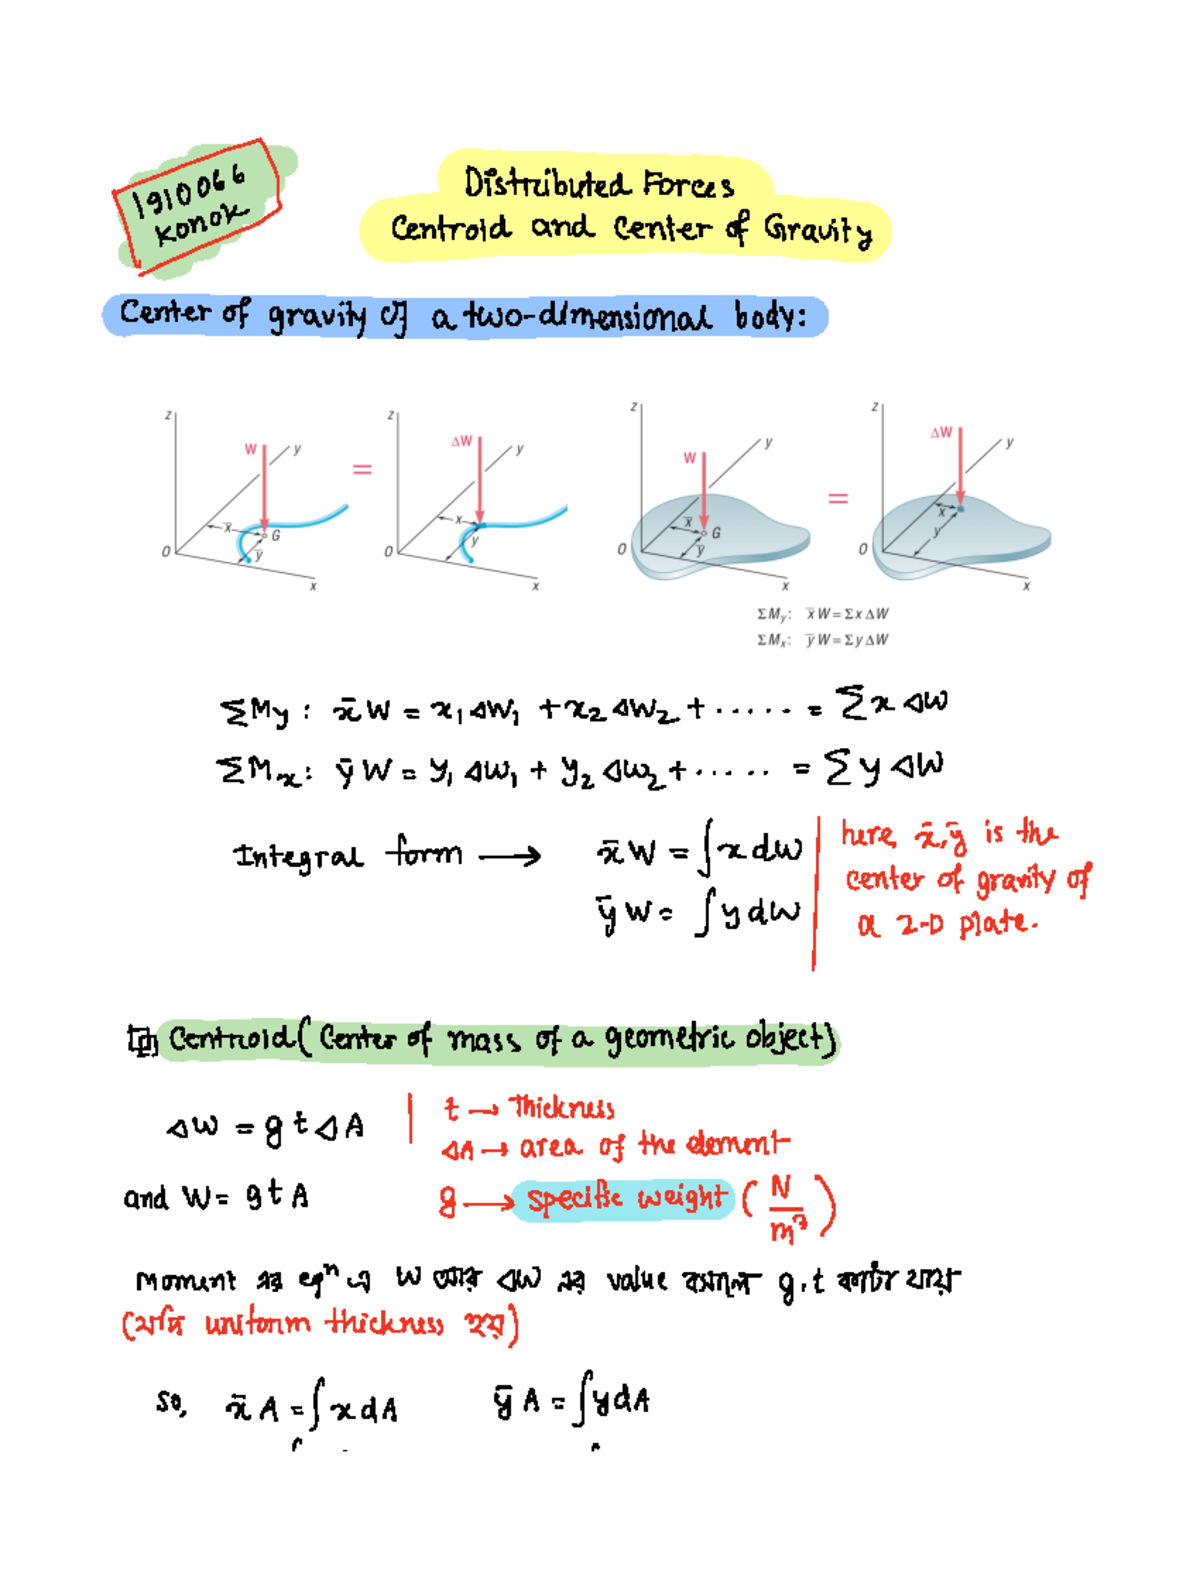 1910066
Konok
Distributed Forces
Centroid and Center of Gravity
Center of gravity of a two-dimensional body:
z z z z
W y = ΔW y W y = ΔW y
x̄ G ȳ x y x̄ G ȳ x y
O x O x O x O x
ΣMy: x̄ W = Σx ΔW
ΣMx: ȳ W = Σy ΔW
ΣMy : x̄ W = x₁ ΔW₁ + x₂ ΔW₂ + ..... = Σ x ΔW
ΣMx : ȳ W = y₁ ΔW₁ + y₂ ΔW₂ + ..... = Σ y ΔW
Integral form → x̄ W = ∫ x dW
ȳ W = ∫ y dW
here, x̄, ȳ is the
center of gravity of
a 2-D plate.
Centroid (Center of mass of a geometric object)
ΔW = g t ΔA
t → Thickness
ΔA → area of the element
and W = g t A
g → specific weight (N/m³)
Moment এর eqⁿ এ W আর ΔW এর value বসালে g, t কাটা যায়
(যদি uniform thickness হয়)
So, x̄ A = ∫ x dA ȳ A = ∫ y dA